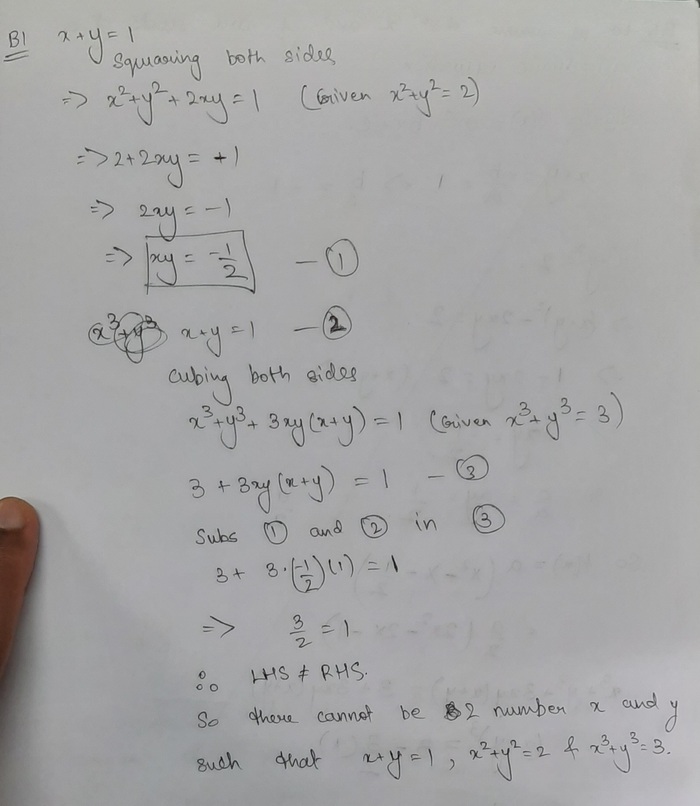 B1 x+y=1
Squaring both sides
=> x²+y²+2xy=1 (Given x²+y²=2)
=> 2+2xy=+1
=> 2xy=-1
=> xy = -1/2 — ①
x³+y³ x+y=1 — ②
cubing both sides
x³+y³+3xy(x+y)=1 (Given x³+y³=3)
3+3xy(x+y) = 1 — ③
Subs ① and ② in ③
3+ 3·(-1/2)(1) = 1
=> 3/2 = 1
∴ LHS ≠ RHS.
So there cannot be 2 number x and y
such that x+y=1, x²+y²=2 & x³+y³=3.